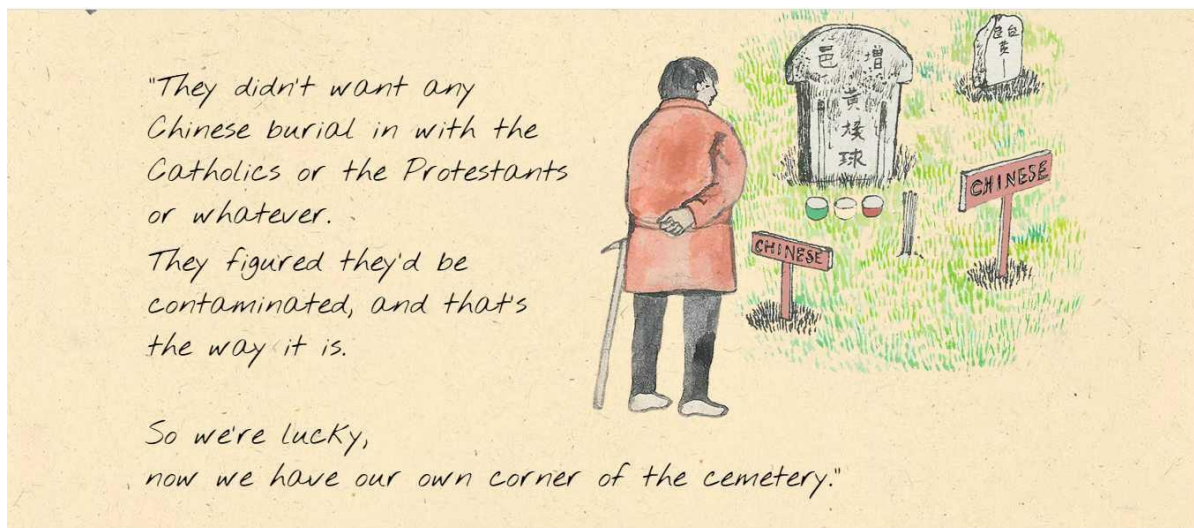 "They didn't want any
Chinese burial in with the
Catholics or the Protestants
or whatever.
They figured they'd be
contaminated, and that's
the way it is.
So we're lucky,
now we have our own corner of the cemetery."
邑 增
黄
球
CHINESE
CHINESE